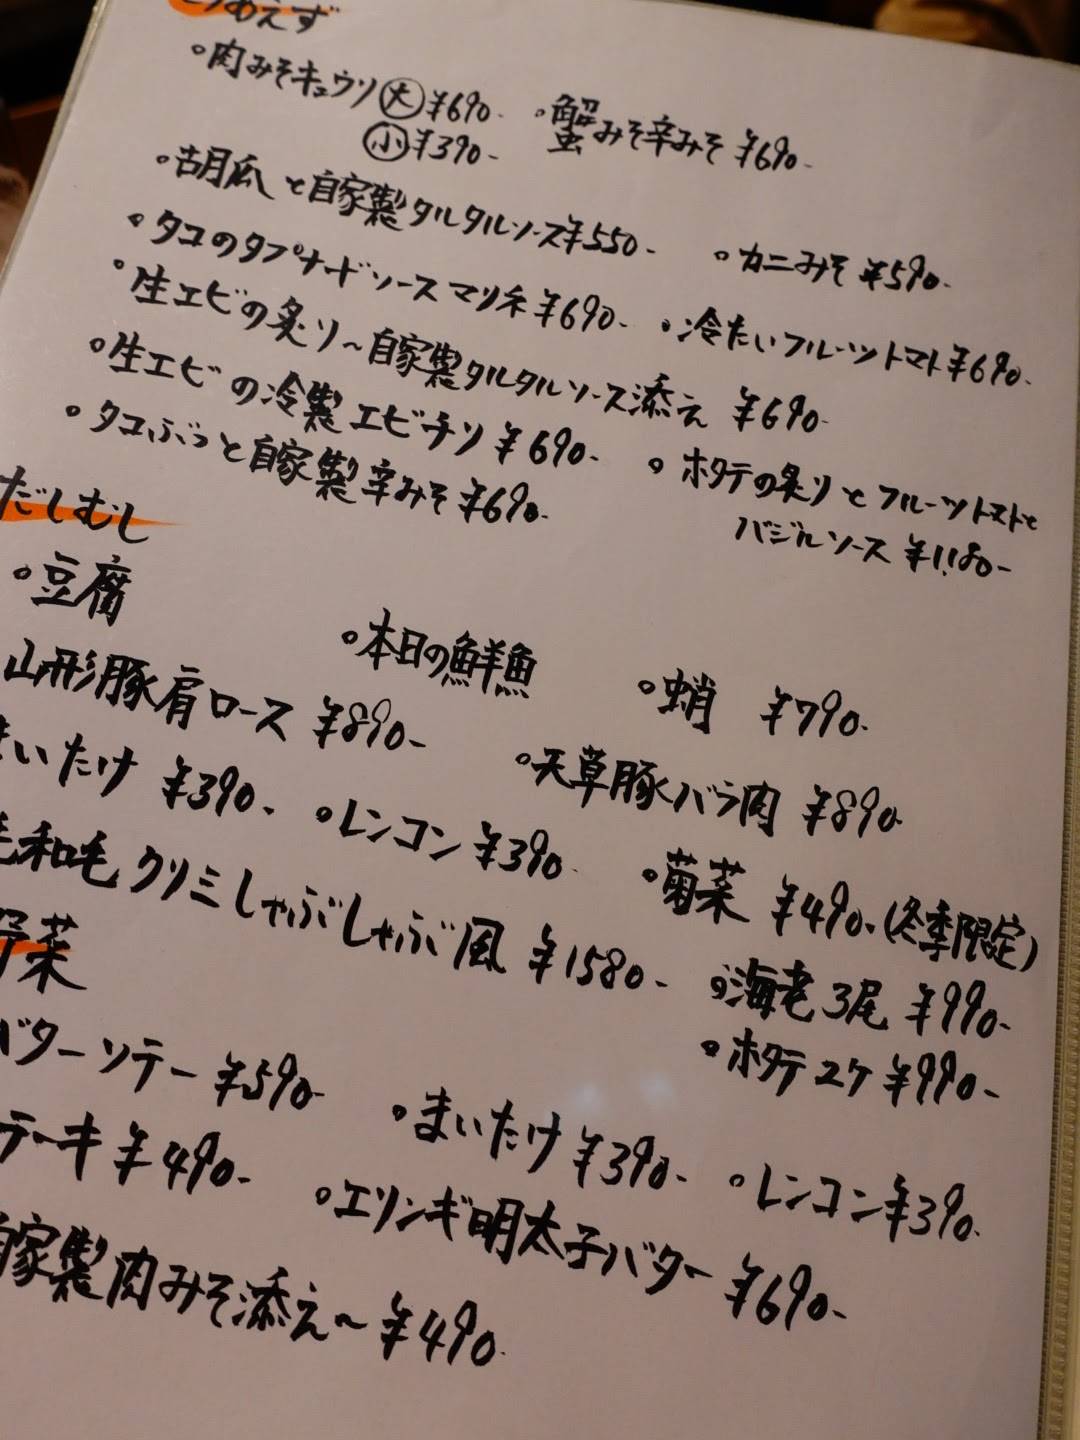 とりあえず
・肉みそキュウリ 大 ¥690- ・蟹みそ辛みそ ¥690-
小 ¥390-
・胡瓜と自家製タルタルソース ¥550- ・カニみそ ¥590-
・タコのタプナードソースマリネ ¥690- ・冷たいフルーツトマト ¥690-
・生エビの炙り~自家製タルタルソース添え ¥690-
・生エビの冷製エビチリ ¥690- ・ホタテの炙りとフルーツトマトと
バジルソース ¥1,180-
・タコぶつと自家製辛みそ ¥690-
だしむし
・豆腐 ・本日の鮮魚 ・蛸 ¥790-
山形豚肩ロース ¥890- ・天草豚バラ肉 ¥890-
まいたけ ¥390- ・レンコン ¥390- ・菊菜 ¥490-(冬季限定)
毛和毛クリミしゃぶしゃぶ風 ¥1580- ・海老3尾 ¥990-
・ホタテ2ケ ¥990-
野菜
バターソテー ¥590- ・まいたけ ¥390- ・レンコン ¥390-
テーキ ¥490- ・エリンギ明太子バター ¥690-
自家製肉みそ添え~ ¥490-